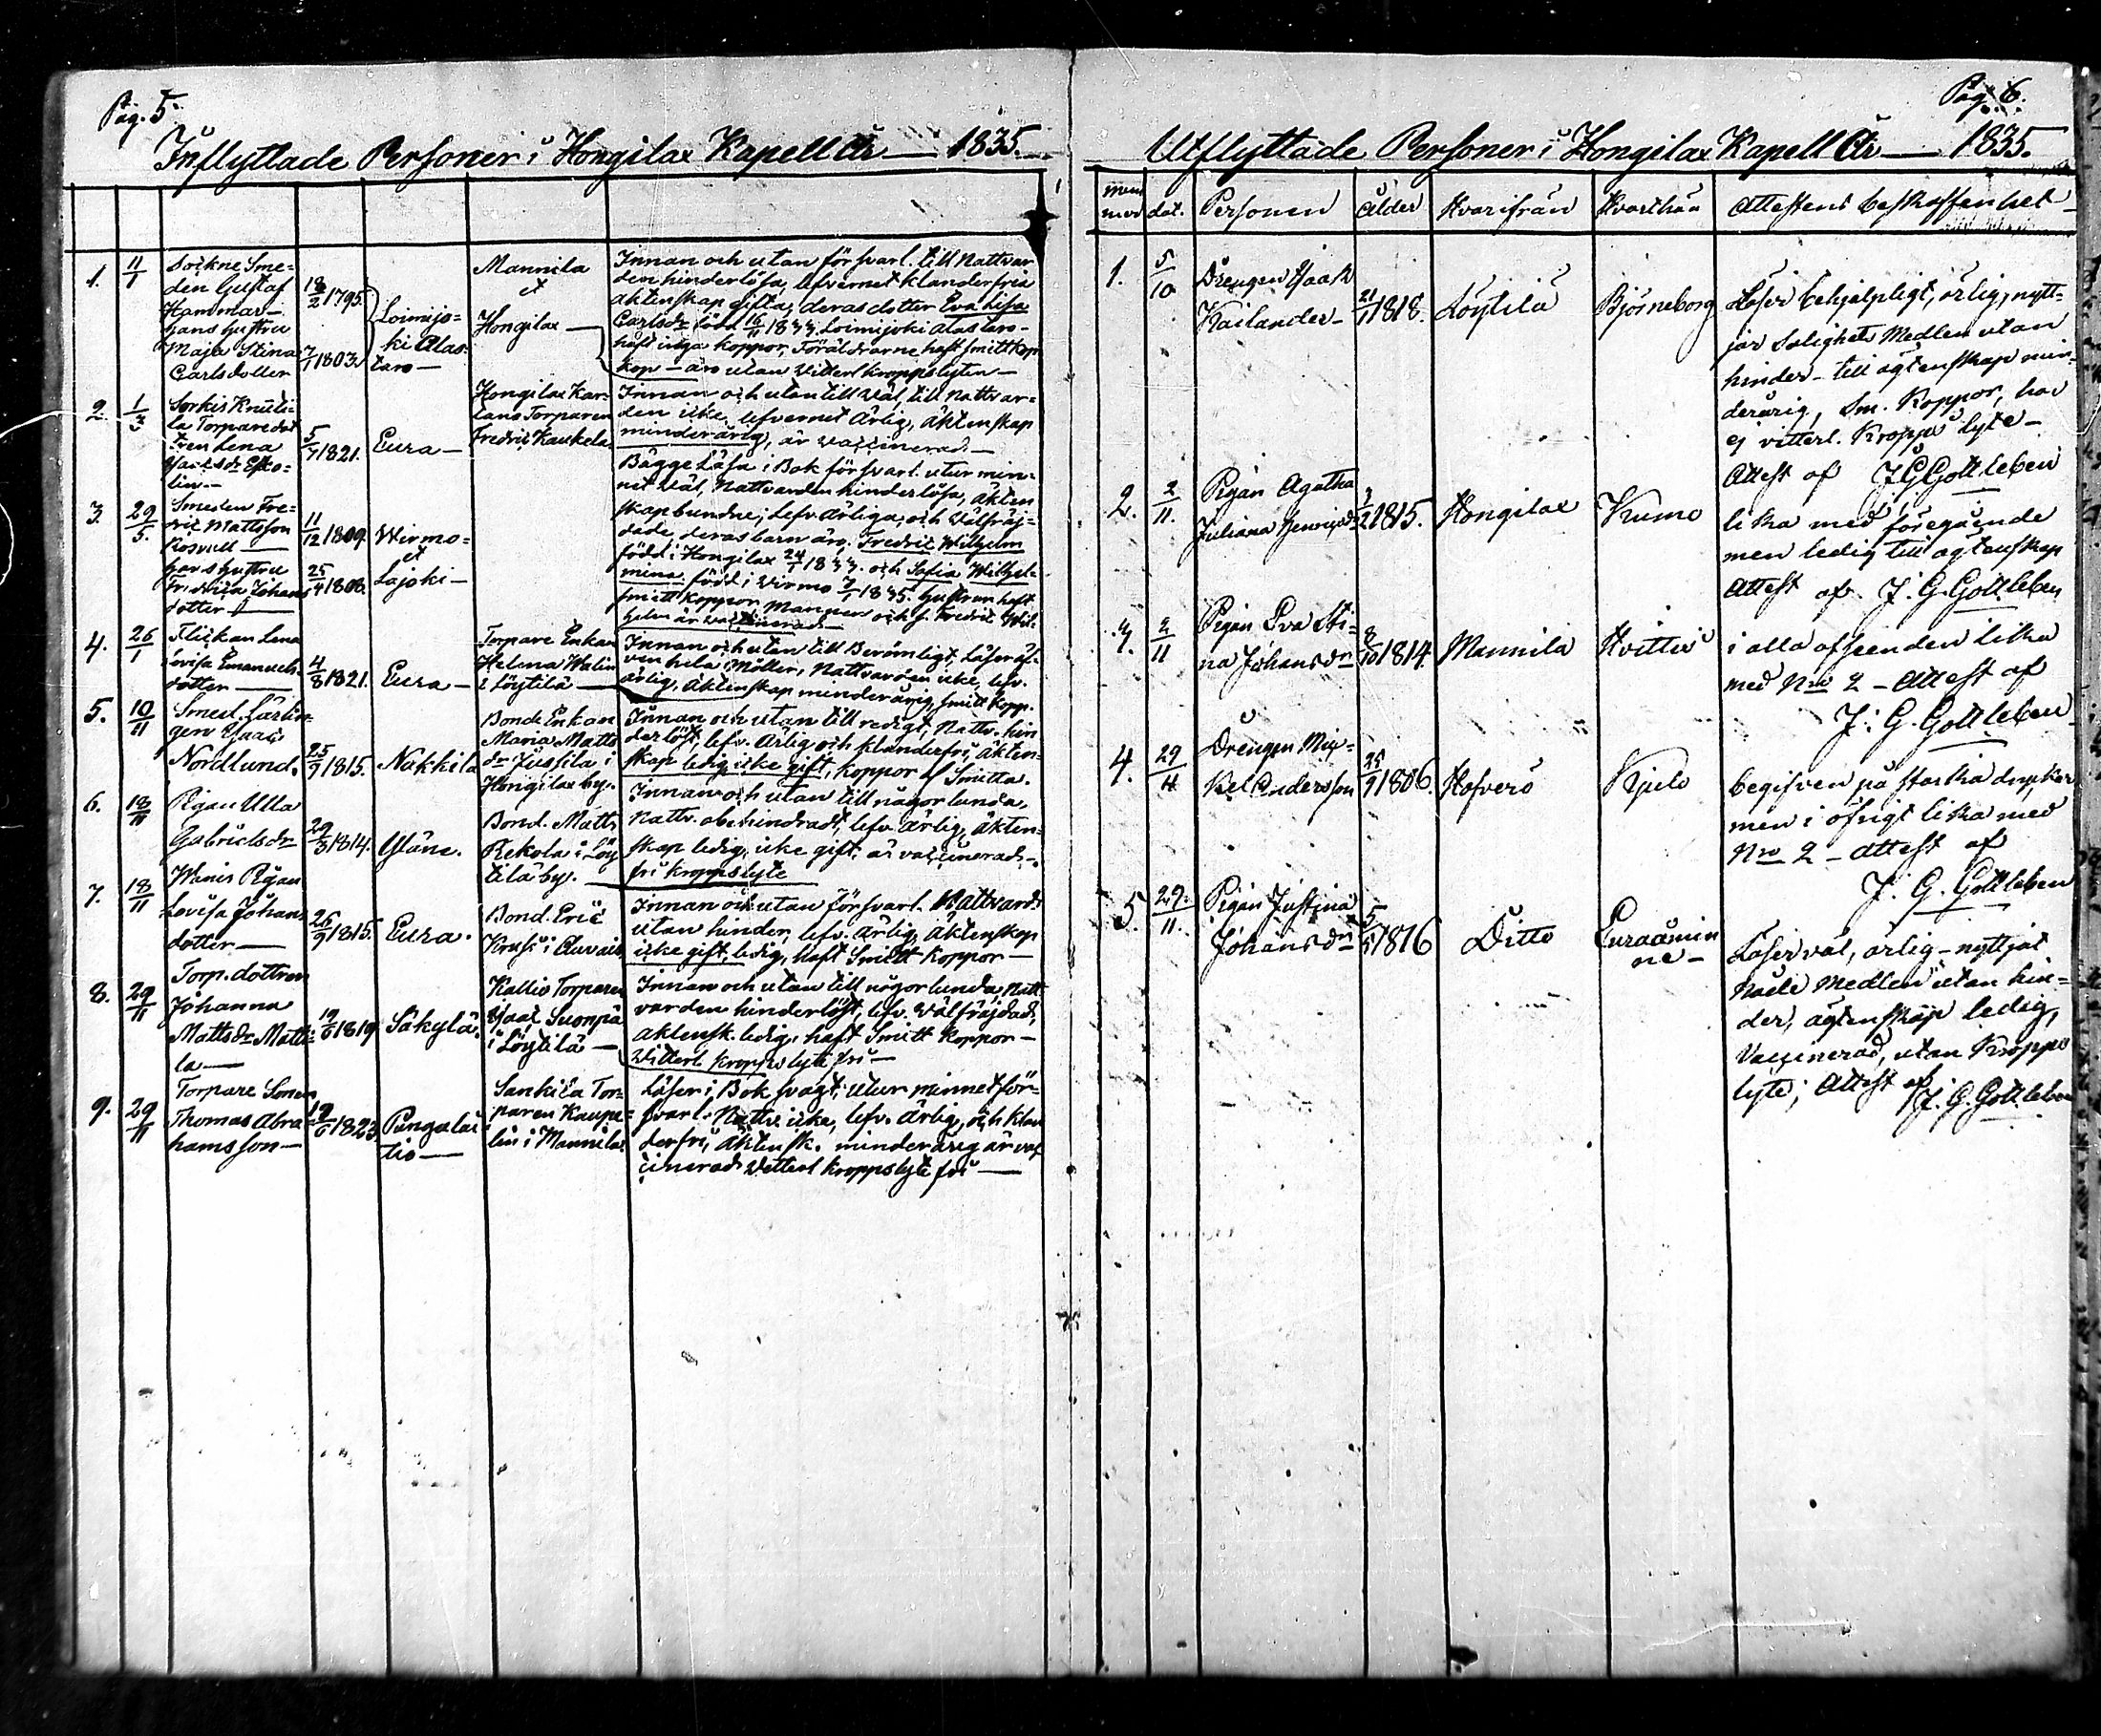 Pag. 5
Inflyttade Personer i Hongilax Kapell År — 1835.
1. 11/1 Sockne Sme=
den Gustaf
Hammar —
hans hustru
Maja Stina
Carlsdotter
18/2 1795.
7/1 1803.
Loimijo=
ki Alas=
taro —
Mannila
et
Hongilax —
Innan och utan försvarl. till Nattvar
den hinderlösa, lefvernet klanderfria
äktenskap gifta, deras dotter Eva Lisa
Carlsdr född 16/11 1833. Loimijoki Alastaro —
haft inga koppor, Föräldrarne haft smittkop
kop — äro utan vitterl. kroppslyten —
2. 1/3 Sorkis Knuti=
la Torparedot
tren Lena
lin —
5/7 1821.
Eura —
Hongilax Kar=
lano Torparen
Fredric Kaukela
Innan och utan till Wäl, till Nattvar=
den icke, lefvernet Ärlig, äktenskap
minderårig, är vaccinerad —
3. 29/5. Smeden Fre=
dric Mattsson
Rosvall —
hans hustru
Fredrica Johans
dotter —
11/12 1809.
25/4 1808.
Wirmo=
et
Lajoki —
Bägge Läsa i Bok försvarl. utur min=
net Wäl, Nattvarden hinderlösa, äkten
skap bundne, Lefv. ärliga, och Wälfräj=
dade deras barn äro, Fredric Wilhelm
född i Hongilax 24/1 1833. och Sofia Wilhel=
mina född i Wirmo 7/1 1835. hustrun haft
smitt koppor Mannen och s. Fredric Wil
helm är vaccinerad —
4. 26/1 Flickan Lena
Lovisa Emanuels
dotter —
4/8 1821.
Eura —
Torpare Enkan
Helena Walin
i Löytilä —
Innan och utan till Berömligt, Läser äf=
ven hela Möller, Nattvarden icke, lefv.
ärlig, Äktenskap minderårig, smitt kopp.
5. 10/11 Smed. Lärlin=
gen Isaac
Nordlund.
25/9 1815.
Nakkila
Bonde Enkan
Maria Matts
dr Jussila i
Hongilax by.
Innan och utan till redigt, Nattv. hin
derlöst, lefv. Ärlig och klanderfri, äkten=
skap ledig icke gift, koppor af Smitta.
6. 18/11 Pigan Ulla
Gabrielsdr
29/3 1814.
Yläne.
Bond. Matts
Rekola i Löy
tilä by.
Innan och utan till någorlunda,
Nattv. obehindradt, lefv. ärlig, äkten=
skap ledig, icke gift, är vaccinerad —
fri kroppslyte
7. 18/11 Pigan
Lovisa Johans
dotter —
26/9 1815.
Eura.
Bond. Eric
Krusi i
Innan och utan försvarl. Nattvard.
utan hinder, lefv. ärlig, äktenskap
icke gift, ledig, haft Smitt koppor —
8. 29/11 Torp. dottren
Johanna
Mattsdr Matti=
la —
19/6 1819
Säkylä.
Kallio Torparen
Isaac Suonpä
i Löytilä —
Innan och utan till någorlunda, Natt
varden hinderlöst, lefv. Wälfräjdad,
äktensk. ledig, haft Smitt koppor —
Witterl. kroppslyte fri —
9. 29/11 Torpare Sonen
Thomas Abra
hamsson —
19/6 1823
Pungalai
tio —
Sankila Tor=
paren Kaupi=
lin i Mannila.
Läser i Bok svagt, utur minnet för=
svarl. Nattv. icke, lefv. ärlig, och klan
derfri, äktensk. minderårig är vac
cinerad Witterl kroppslyte fri —
Pag. 6.
Utflyttade Personer i Hongilax Kapell År — 1835.
num
mer dat. Personen Ålder Hvarifrån Hvarthän Attestens beskaffenhet —
1. 5/10 Drengen Isaak
Kailander — 21/11 1818. Löytilä Björneborg
Läser behjelpligt, ärlig, nytt=
jar Salighets Medlen utan
hinder — till ägtenskap min=
derårig, Sm. Koppor, har
ej vitterl. Kropps lyte —
Attest af J G Gottleben
2. 2/11. Pigan Agatha
Juliana Henricsdr 3/2 1815. Hongilax Kumo
lika med föregående
men ledig till ägtenskap
Attest af J. G. Gottleben
3. 2/11 Pigan Eva Sti=
na Johansdr 8/10 1814. Mannila Hvittis
i alla afseenden lika
med No 2 — Attest af
J: G. Gottleben
4. 29/11 Drengen Mic=
kel Andersson 25/9 1806. Hofverö Kjulo
begifven på starka drycker
men i öfrigt lika med
No 2 — attest af
J. G. Gottleben
5. 29/11. Pigan Justina
Johansdr 5/5 1816 Ditto Euraåmin
ne —
Läser väl, ärlig — nyttjat
Nåde Medlen utan hin=
der, ägtenskap ledig,
Vaccinerad, utan Kropps
lyte; Attest af J. G. Gottleben